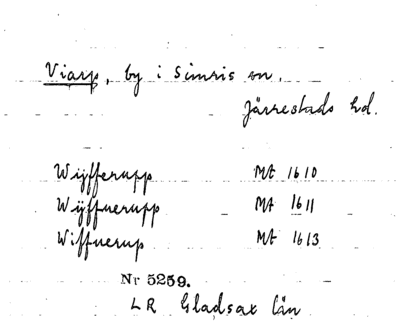 Viarp, by i Simris sn,
Järrestads hd.
Wijfferupp Mt 1610
Wijffuerupp Mt 1611
Wiffuerup Mt 1613
Nr 5259.
LR Gladsax län